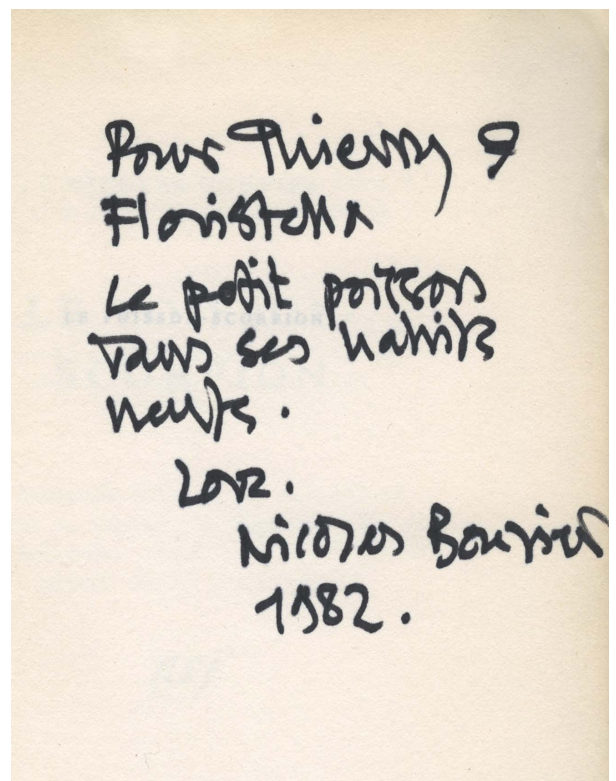 Pour Thierry &
Floristella
Le petit poisson
dans ses habits
neufs.
Love.
Nicolas Bouvier
1982.
LE POISSON-SCORPION
nrf